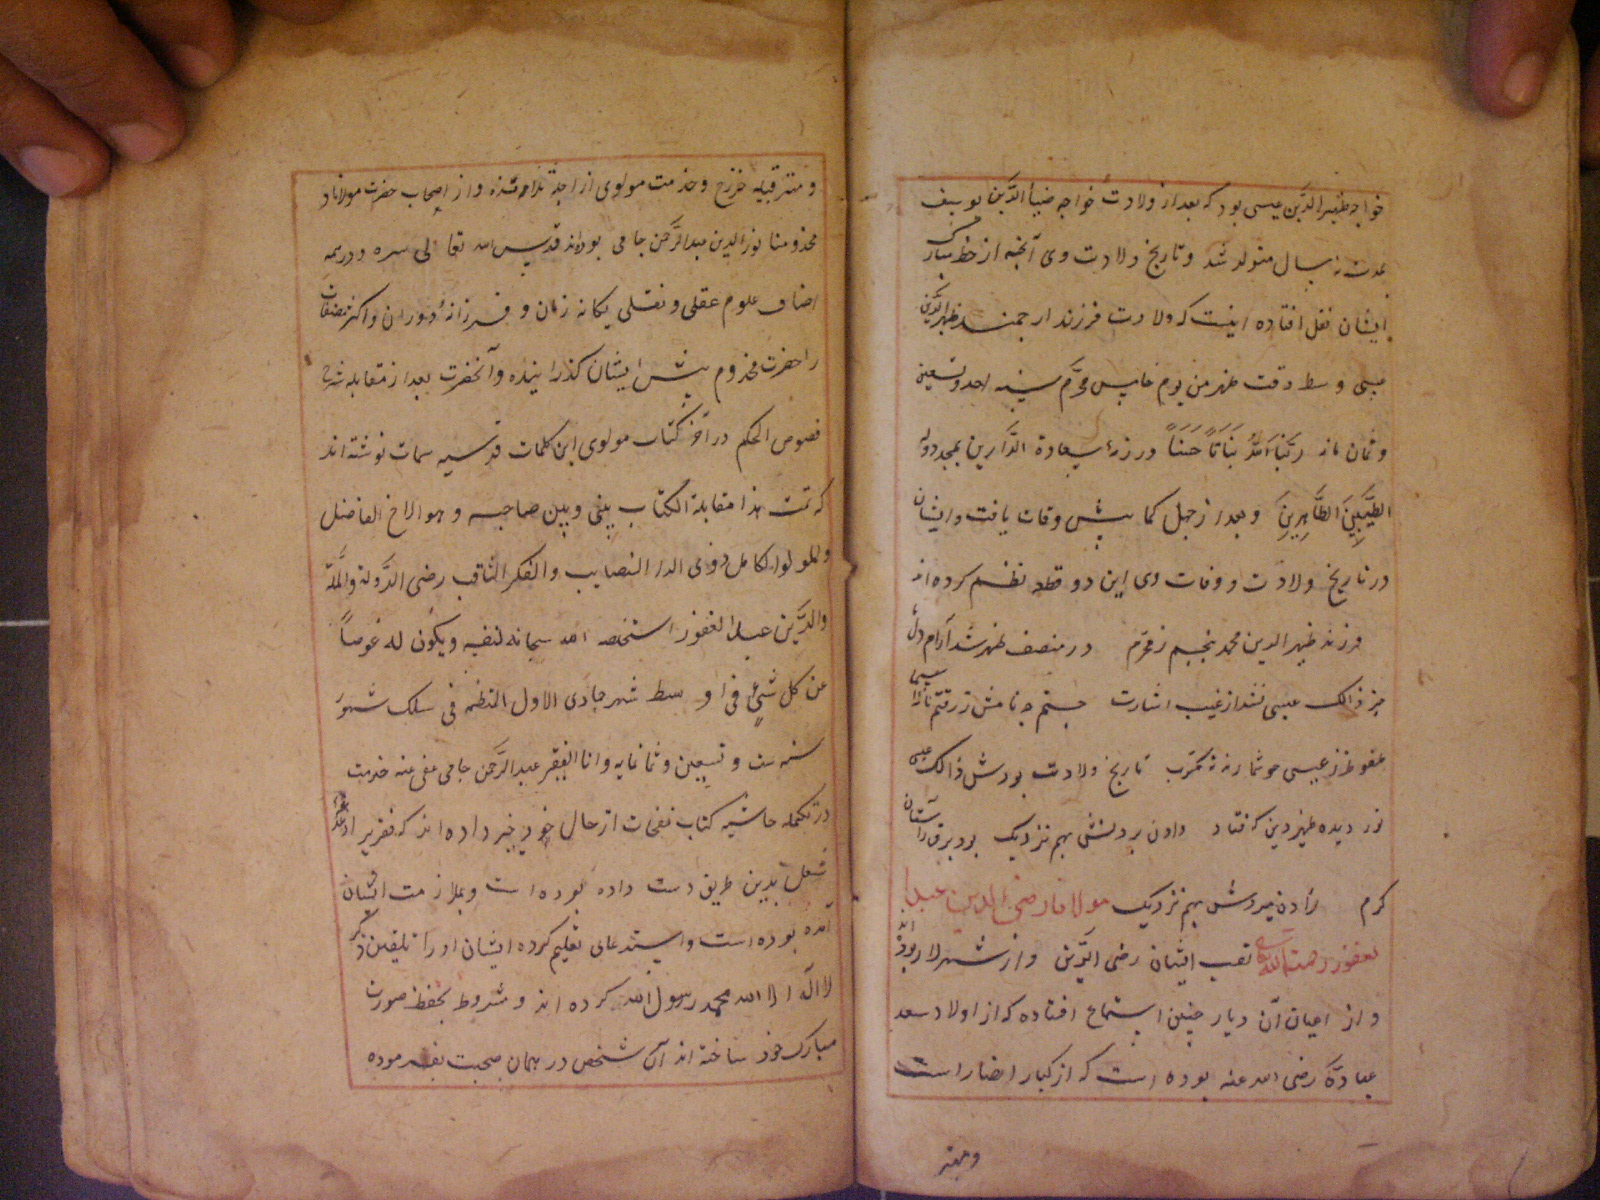 خواجه ظهیر الدین عیسی بود که بعد از ولادت خواجه ضیاء الدین یوسف
بمدت نه سال متولد شد و تاریخ ولادت وی آنچه از خط مبارک
ایشان نقل افتاده اینست که ولادت فرزند ارجمند ظهیر الدین
عیسی وسط وقت ظهر من یوم خامس محرم سنه احد و تسعین
و ثمان مائه نباتا حسنا ورزقه سعادة الدارین بمحمد وآله
الطَّیِّبِینَ الطَّاهِرِینَ و بعد از چهل کما بیش وفات یافت و ایشان
در تاریخ ولادت و وفات وی این دو قطعه نظم کرده اند
فرزند ظهیر الدین محمد پنجم ز محرم در منصف ظهر شد آرام دل
جز ذالک عیسی نشد از غیب اشارت جستم چو نامش ز رقم
عیسی چو شمارند تاریخ ولادت بودش ذالک عیسی
نور دیده ظهیر دین که فتاد دادن بردنش بهم نزدیک بود برقی ز آسمان
کرم زادن مردنش بهم نزدیک مولانا رضی الدین عبد ا
لغفور رحمت الله تعالی لقب ایشان رضی الدین و از شهر لار بوده اند
و از اعیان آن دیار چنین استماع افتاده که از اولاد سعد
عبادة رضی الله عنه بوده است که از کبار انصار است
و مهتر
و مهتر قبیله خزرج و خدمت مولوی از اجلّه تلامذه و از اصحاب حضرت مولانا و
مخدومنا نور الدین عبد الرحمن جامی بوده اند قدس الله تعالی سره و در همه
اصناف علوم عقلی و نقلی یگانه زمان و فرزانه دوران و اکثر مصنفات
را حضرت مخدوم پیش ایشان گذرانیده و آنحضرت بعد از مقابله شرح
فصوص الحکم در آخر کتاب مولوی این کلمات قدسیه سمات نوشته اند
که تمت هذا مقابلة الکتاب بینی و بین صاحبه و هو الاخ الفاضل
والمولی الکامل ذوی الرای الصایب والفکر الثاقب رضی الدولة والملة
والدین عبد الغفور استخلصه الله سبحانه لنفسه ویکون له عوضاً
عن کل شیٔ فی اوسط شهر جمادی الاول المنتظمة فی سلک شهور
سنه ست و تسعین و ثمانمایه وانا الفقیر عبد الرحمن جامی عفی عنه خدمت
در تکمله حاشیه کتاب نفحات از حال خود خبر داده اند که فقیر را
شغل بدین طریق دست داده بوده است و بملازمت ایشان
آمده بوده است و استدعای تعلیم کرده ایشان او را تلقین ذکر
لا اله الا الله محمد رسول الله کرده اند و مشروط بحفظ صورت
مبارک خود ساخته اند آن شخص در همان صحبت بفرموده